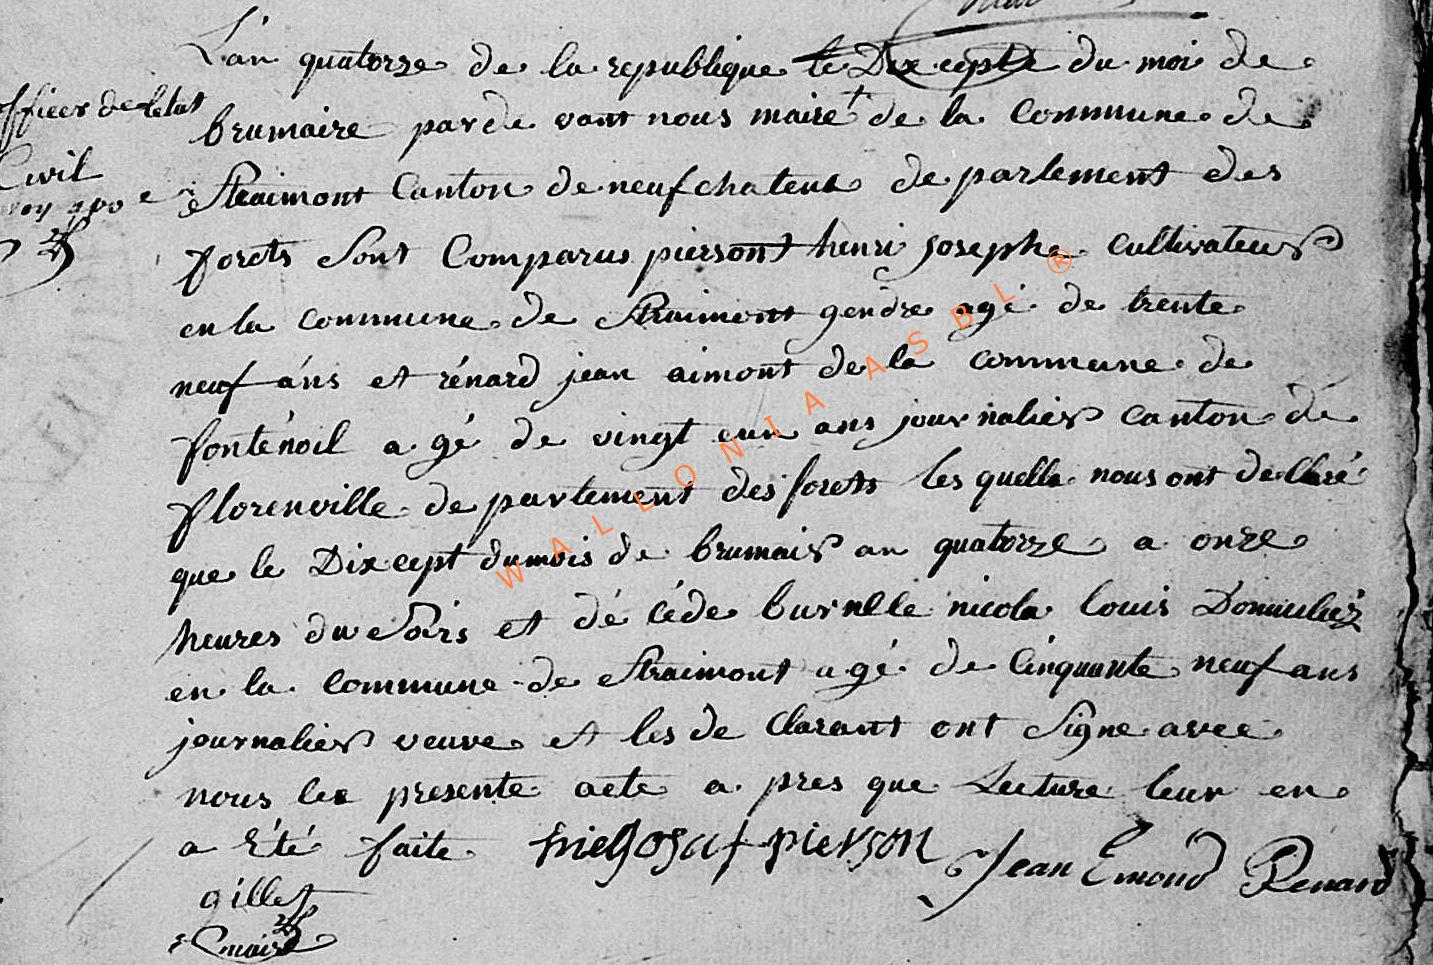 L'an quatorze de la republique le Dix cepte du moi de
brumaire par de vant nous maire + de la Commune de
officer de l'etat
Civil
Straimont Canton de neufchateau de partement des
forets Sont Comparus piersont henri josephe cultivateur
en la commune de Straimont gendre agé de trente
neuf áns et rénard jean aimont de la commune de
fonténoil a gé de vingt eun ans journalier canton dé
florenville de partement des forets les quelle nous ont de Claré
que le Dix cept du mois de brumair an quatorze a onze
heures du Soirs et dé céde burnelle nicola louis Domiciliéz
en la commune de Straimont agé de Cinquante neuf ans
journalier veuve et les de Clarant ont Signe avec
nous les presente acte a pres que Lecture leur en
a Été faite
pierson
Jean Emond Renard
gilles
maire
WALLONIA ASBL ®